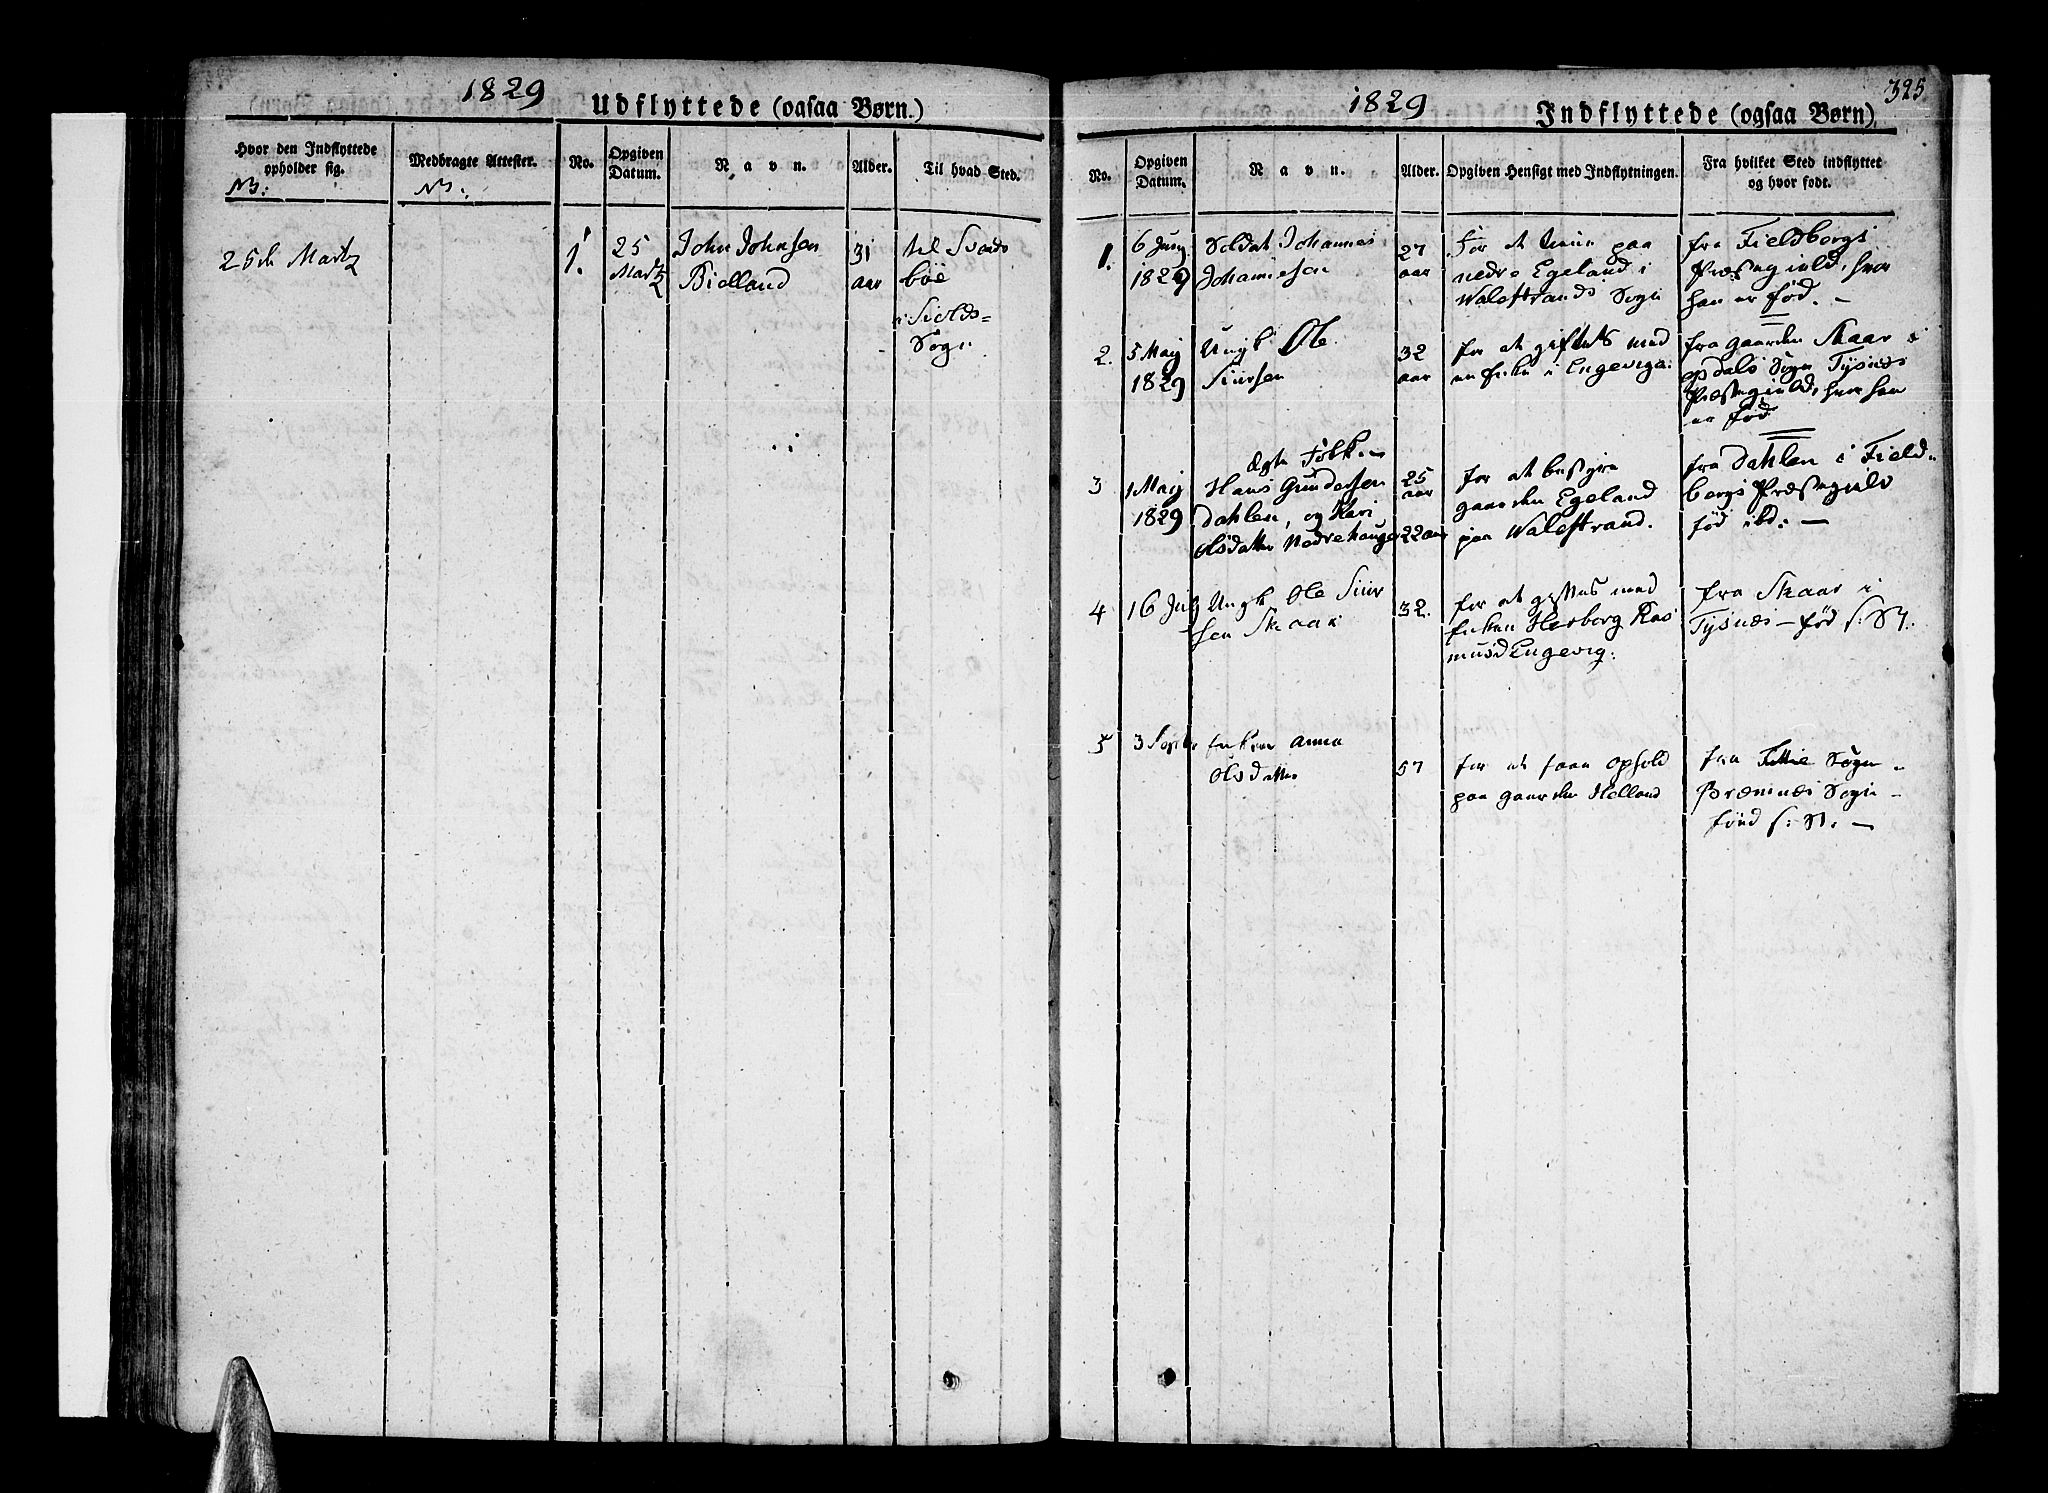 1829
Udflyttede (ogsaa Børn.)
Hvor den Indflyttede
opholder sig.
Medbragte Attester.
No.
Opgiven
Datum.
Navn.
Alder.
Til hvad Sted.
NB:
NB:
25de Martz
1.
25
Martz
John Johnsen
Bielland
31
aar
til Svands
böe
i Fields-
Sogn
325
1829
Indflyttede (ogsaa Børn).
No.
Opgiven
Datum.
Navn.
Alder.
Opgiven Hensigt med Indflytningen.
Fra hvilket Sted indflyttet
og hvor født.
1.
6 Juny
1829
Soldat Johannes
Johannesen
27
aar
For at tiene paa
nedre Egeland i
Walestrands Sogn
fra Fieldbergs
Præstegield, hvor
han er fød. -
2.
5 Maij
1829
Ungk Ole
Siursen
32
aar
for at giftes med
en Enke i Engevigen:
fra gaarden Skaar i
opdals Sogn Tysnæs
Præstegield, hvor han
er fød
3
1 Maij
1829
Ægte Folk
Hans Gundersen
Dahlen, og Kari
Olsdatter Nedrehougen
25
aar
22 aar
for at bestyre
gaarden Egeland
paa Walestrand.
fra Dahlen i Field-
bergs Præstegield
fød ibd: -
4
16 July
Ungk Ole Siur
sen Skaar
32.
for at giftes med
Enken Herborg Ras
musd Engevig:
fra Skaar i
Tysnæs - fød s: St:
5
3 Septbr
Enken Anna
Olsdatter
57
for at faae ophold
paa gaarden Helland
fra Sogn -
Bremnæs Sogn -
fönd s: St: -